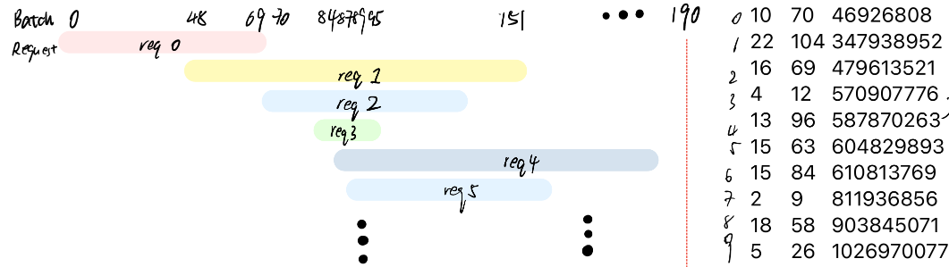 Batch 0 48 69 70 84 87 89 95 151 190
Request req 0
req 1
req 2
req3
req4
req5
0 10 70 46926808
1 22 104 347938952
2 16 69 479613521
3 4 12 570907776
4 13 96 587870263
5 15 63 604829893
6 15 84 610813769
7 2 9 811936856
8 18 58 903845071
9 5 26 1026970077